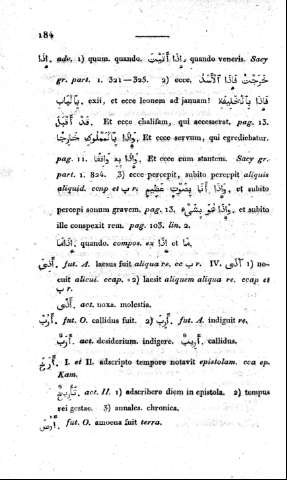 184
إِذَا. adv. 1) quum. quando. إِذَا أَتَيْتَ. quando veneris. Sacy
gr. part. 1. 321—325. 2) ecce. خَرَجْتُ فَإِذَا الْأَسَدُ
بِالْبَابِ. exii, et ecce leonem ad januam! فَإِذَا بِالْخَلِيفَةِ
قَدْ أَقْبَلَ. Et ecce chalifam, qui accesserat, pag. 13.
وَإِذَا بِالْمَمْلُوكِ خَارِجًا. Et ecce servum, qui egrediebatur.
pag. 11. وَإِذَا بِهِ وَاقِفًا. Et ecce eum stantem. Sacy gr.
part. 1. 824. 3) ecce percepit, subito percepit aliquis
aliquid. ccnp et ب r. وَإِذَا أَنَا بِصَوْتٍ عَظِيمٍ. et subito
percepi sonum gravem. pag. 13. وَإِذَا هُوَ بِشَيْءٍ. et subito
ille conspexit rem. pag. 103. lin. 2.
إِذَامَا. quando. compos. ex إِذَا et مَا.
أَذِىَ. fut. A. laesus fuit aliqua re. cc ب r. IV. آذَى 1) no-
cuit alicui. ccap. 2) laesit aliquem aliqua re. ccap et
ب r.
أَذًى. act. noxa. molestia.
أَرُبَ. fut. O. callidus fuit. 2) أَرِبَ. fut. A. indiguit re.
أَرَبٌ. act. desiderium. indigere. أَرِيبٌ. callidus.
أَرَخَ. I. et II. adscripto tempore notavit epistolam. cca ep.
Kam.
تَأْرِيخٌ. act. II. 1) adscribere diem in epistola. 2) tempus
rei gestae. 3) annales. chronica.
أَرُضَ. fut. O. amoena fuit terra.